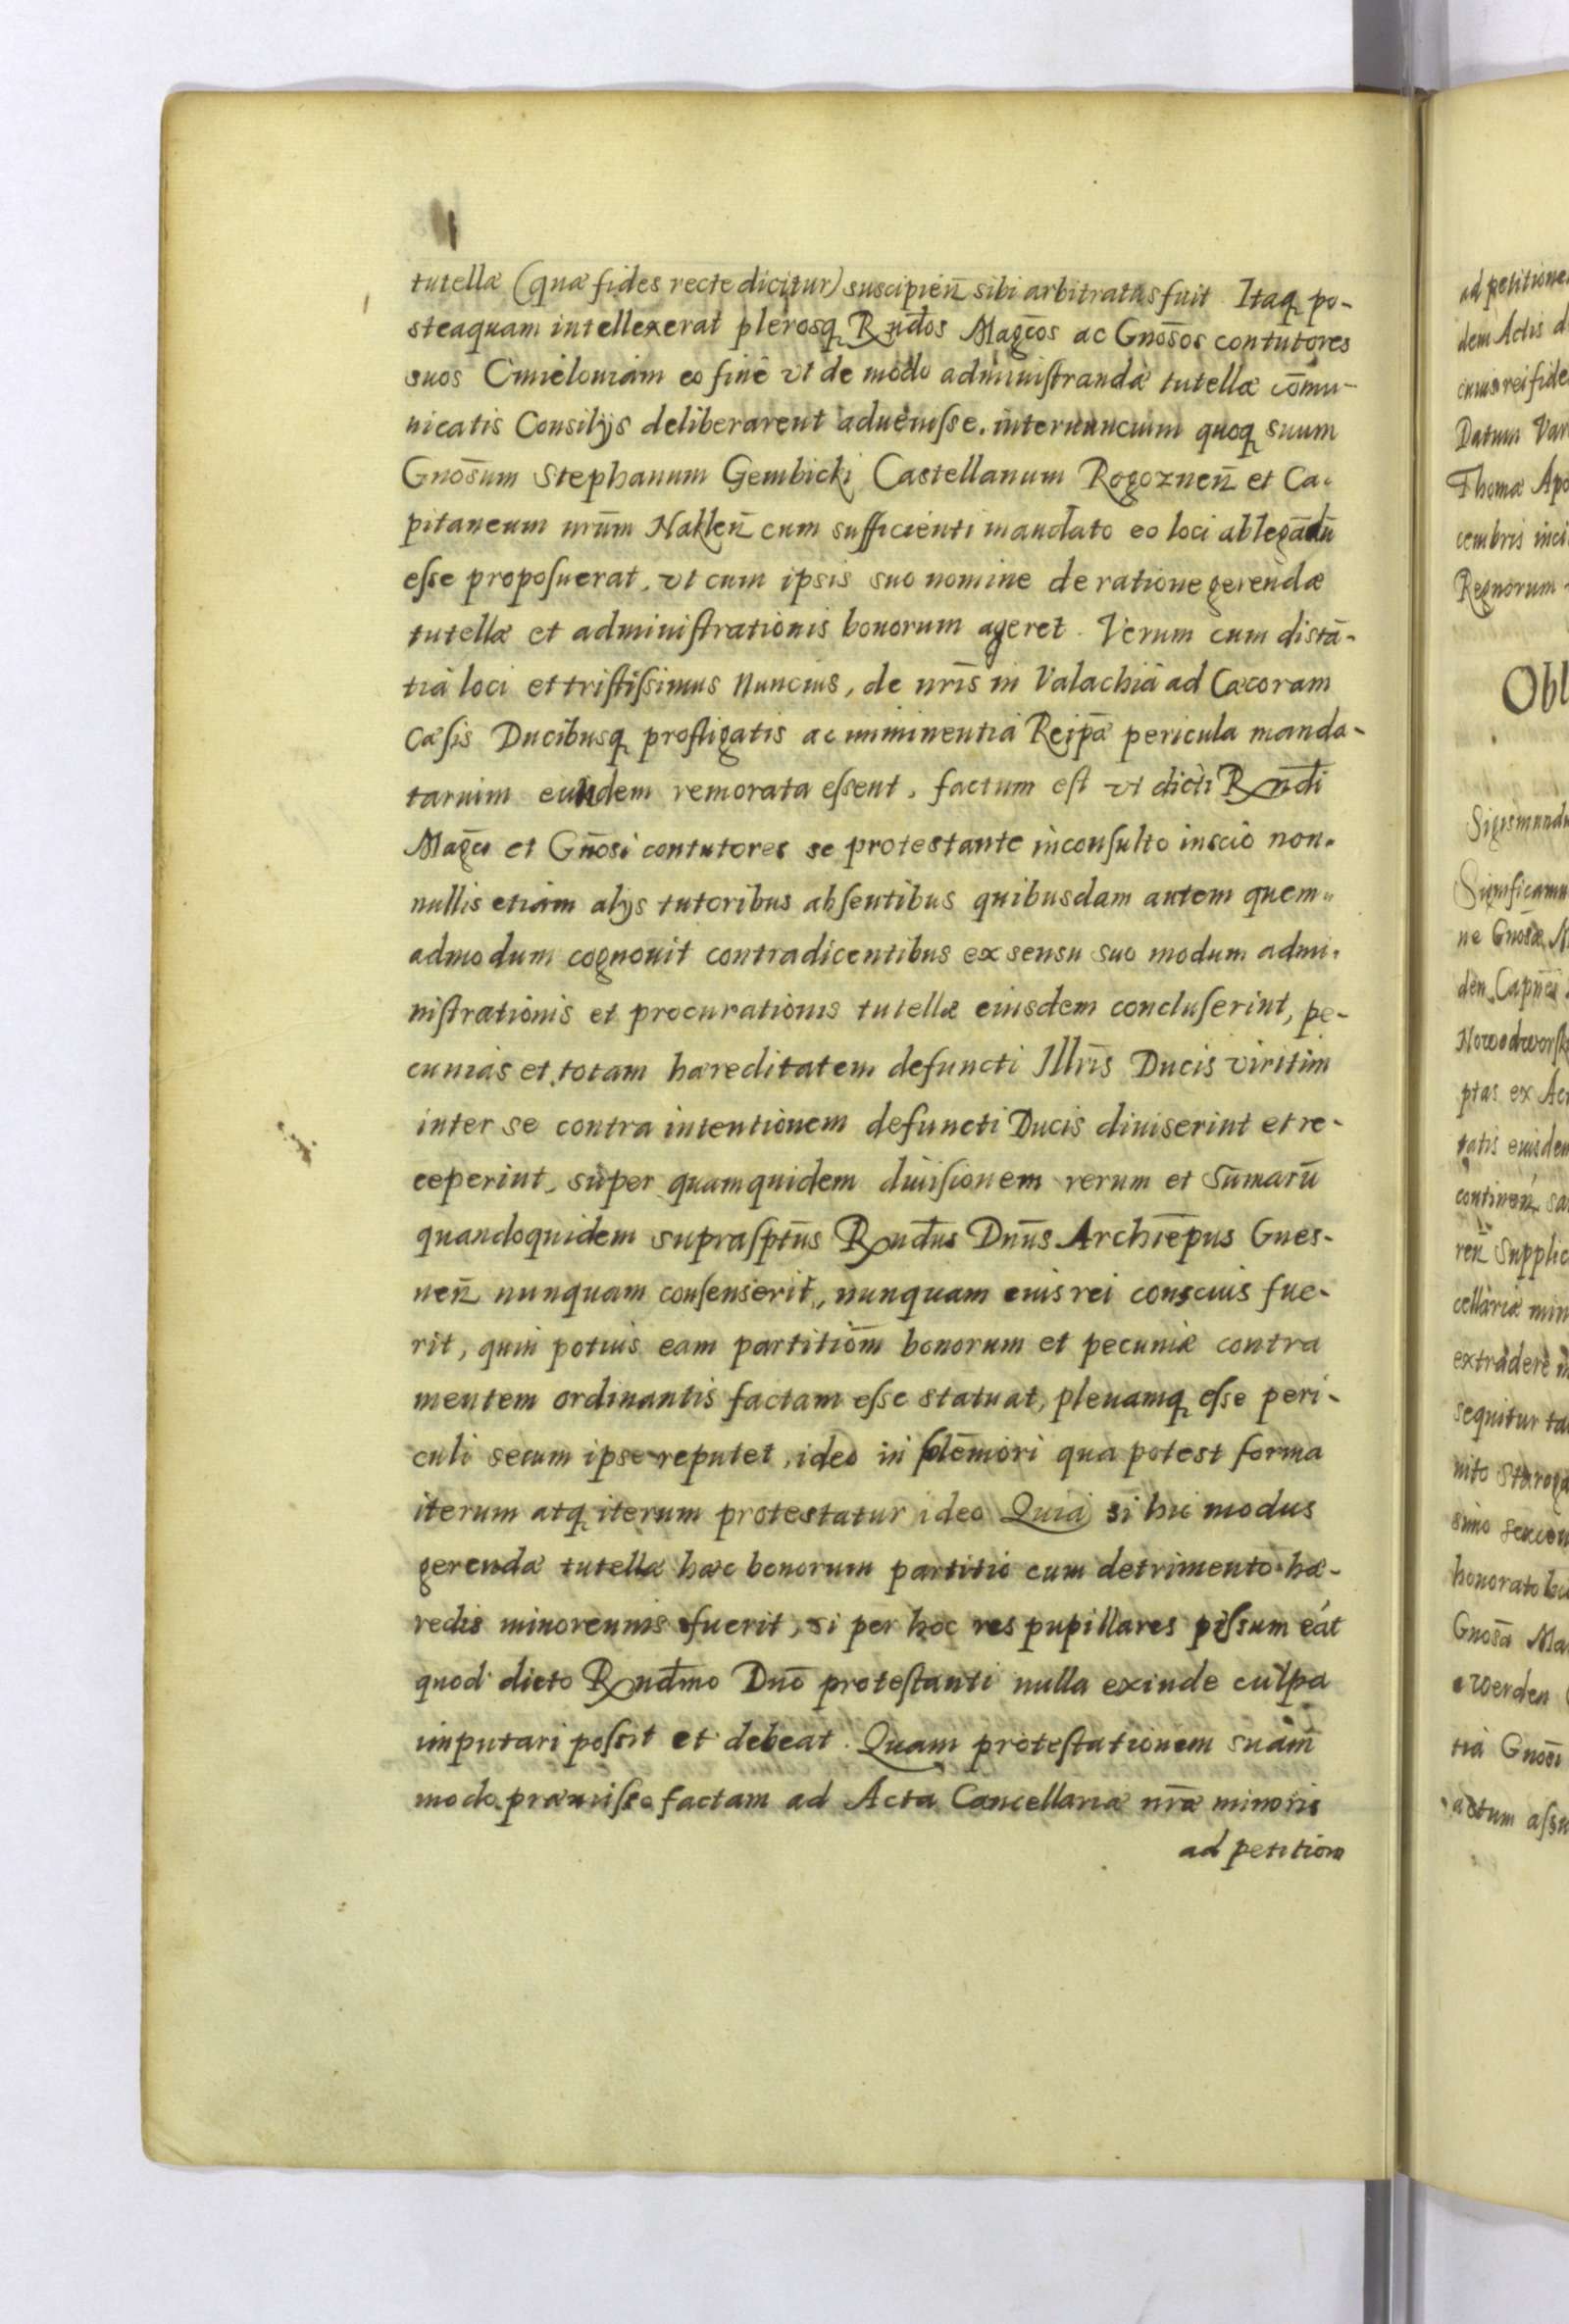 tutellæ (quæ fides recte dicitur) suscipień sibi arbitratus fuit. Itaq, po-
steaquam intellexerat plerosq, Rndos Magcos ac Gnosos contutores
suos Cmieloviam eo finè vt de modo administrandæ tutellæ comu-
nicatis Consilijs deliberarent advenisse. internuncium quoq, suum
Gnosum Stephanum Gembicki Castellanum Rogoznen̄ et Ca-
pitaneum nrum Naklen̄ cum sufficienti mandato eo loci ablegādū
esse proposuerat, vt cum ipsis suo nomine de ratione gerendæ
tutellæ et administrationis bonorum ageret. Verum cum distā-
tia loci et tristissimus Nuncius, de nris in Valachia ad Cæcoram
cæsis Ducibusq, profligatis ac imminentia Reipæ pericula manda-
tarium eundem remorata essent, factum est vt dicti Rndi
Magci et Gnosi contutores se protestante inconsulto inscio non-
nullis etiam alijs tutoribus absentibus quibusdam autem quem-
admodum cognouit contradicentibus ex sensu suo modum admi-
nistrationis et procurationis tutellæ eiusdem concluserint, pe-
cunias et totam hæreditatem defuncti Illris Ducis viritim
inter se contra intentionem defuncti Ducis diuiserint et re-
ceperint, super quamquidem diuisionem rerum et Sumarū
quandoquidem suprasptus Rndus Dnus Archiepus Gnes-
nen̄ nunquam consenserit, nunquam euis rei conscius fue-
rit, quin potius eam partitiom bonorum et pecuniæ contra
mentem ordinantis factam esse statuat, plenamq, esse peri-
culi secum ipse reputet, ideo in solēniori qua potest forma
iterum atq, iterum protestatur ideo Quia si hic modus
gerendæ tutellæ hæc bonorum partitio cum detrimento hæ-
redis minorennis fuerit, si per hoc res pupillares pessum eat
quod dicto Rndmo Dno protestanti nulla exinde culpa
imputari possit et debeat. Quam protestationem suam
modo præmisso factam ad Acta Cancellariæ nræ minoris
ad petitiom
ad petitione
dem Actis d
cuius rei fide
Datum Var
Thomæ Apo
cembris inci
Regnorum
Obl
Sigismundu
Significamu
ne Gnosæ
den. Capnei
Nowodworsk
ptas ex Ac
tatis eiusdem
continen̄ sa
ren̄ Supplic
cellariæ min
extradere
sequitur ta
nito Staroga
honorato
Gnosa Ma
Werden
tia Gnosi
actum assu